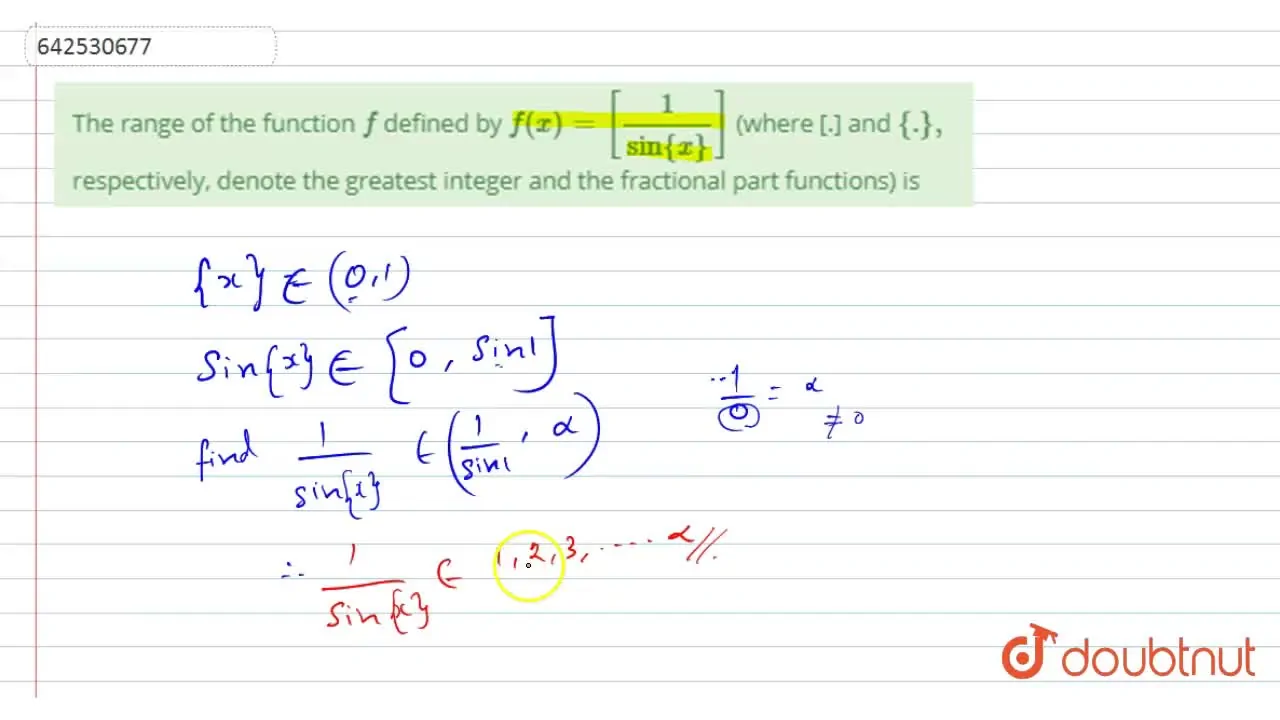 642530677
The range of the function f defined by f(x) = [1/sin{x}] (where [.] and {.},
respectively, denote the greatest integer and the fractional part functions) is
{x} ∈ (0,1)
Sin{x} ∈ [0, Sin1]
find 1/sin{x} ∈ (1/sin1, α)
1/0 = α ≠ 0
∴ 1/Sin{x} ∈ 1, 2, 3, ..... α //.
doubtnut